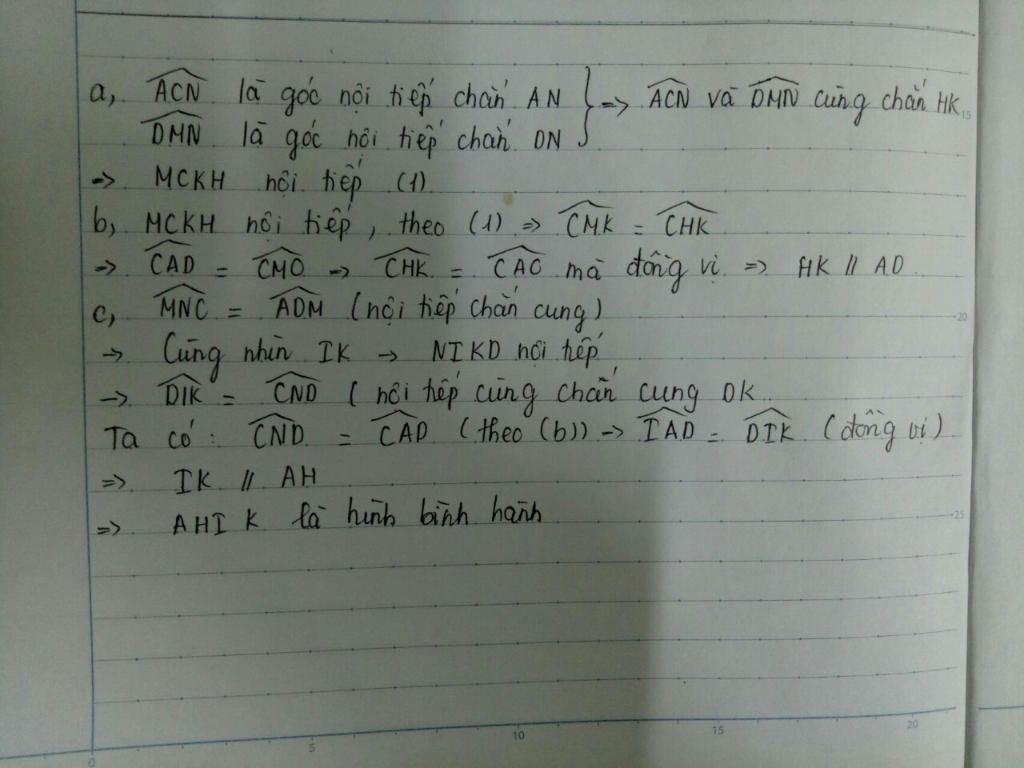 a, ACN là góc nội tiếp chắn AN } => ACN và DMN cùng chắn HK
DMN là góc nội tiếp chắn DN
=> MCKH nội tiếp (1)
b, MCKH nội tiếp, theo (1) => CMK = CHK
=> CAD = CMO → CHK = CAO mà đồng vị => HK // AD
c, MNC = ADM (nội tiếp chắn cung)
→ Cùng nhìn IK → NIKD nội tiếp
→ DIK = CND ( nội tiếp cùng chắn cung DK
Ta có: CND = CAD (theo (b)) → IAD = DIK (đồng vị)
=> IK // AH
=> AHIK là hình bình hành
15
20
25
0 5 10 15 20